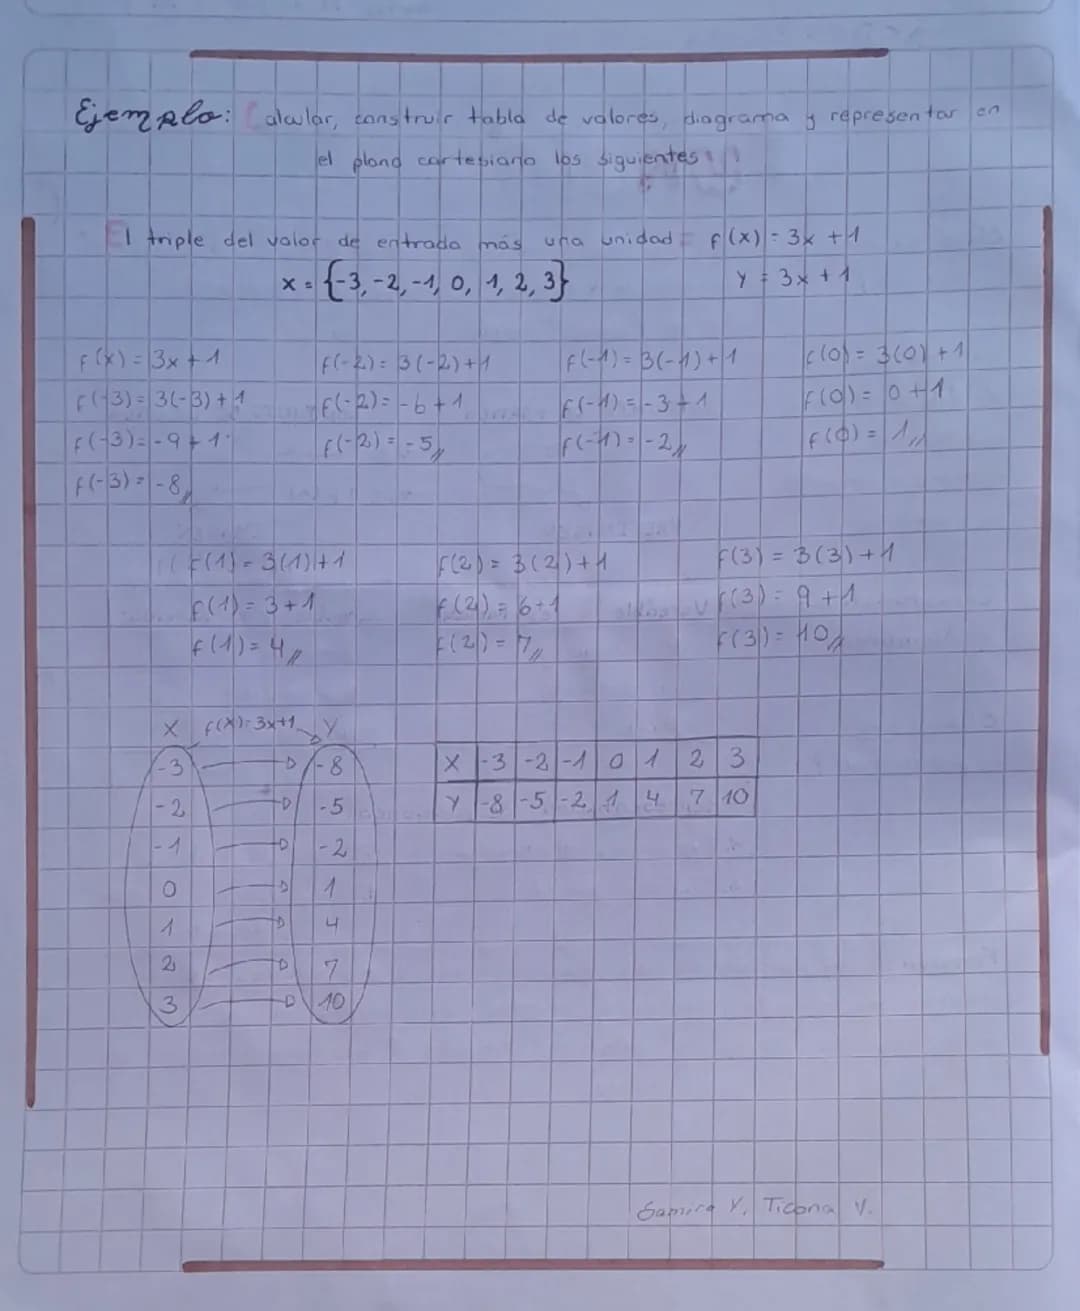 Ejemplo: Calcular, construir tabla de valores, diagrama y representar en
el plano cartesiano los siguientes
El triple del valor de entrada más una unidad = f(x) = 3x + 1
x = {-3, -2, -1, 0, 1, 2, 3} y = 3x + 1
f(x) = 3x + 1 f(-2) = 3(-2) + 1 f(-1) = 3(-1) + 1 f(0) = 3(0) + 1
f(-3) = 3(-3) + 1 f(-2) = -6 + 1 f(-1) = -3 + 1 f(0) = 0 + 1
f(-3) = -9 + 1 f(-2) = -5 f(-1) = -2 f(0) = 1
f(-3) = -8
f(1) = 3(1) + 1 f(2) = 3(2) + 1 f(3) = 3(3) + 1
f(1) = 3 + 1 f(2) = 6 + 1 f(3) = 9 + 1
f(1) = 4 f(2) = 7 f(3) = 10
X f(x) = 3x + 1 Y
-3 -8
-2 -5
-1 -2
0 1
1 4
2 7
3 10
X -3 -2 -1 0 1 2 3
Y -8 -5 -2 1 4 7 10
Samira Y. Ticona V.